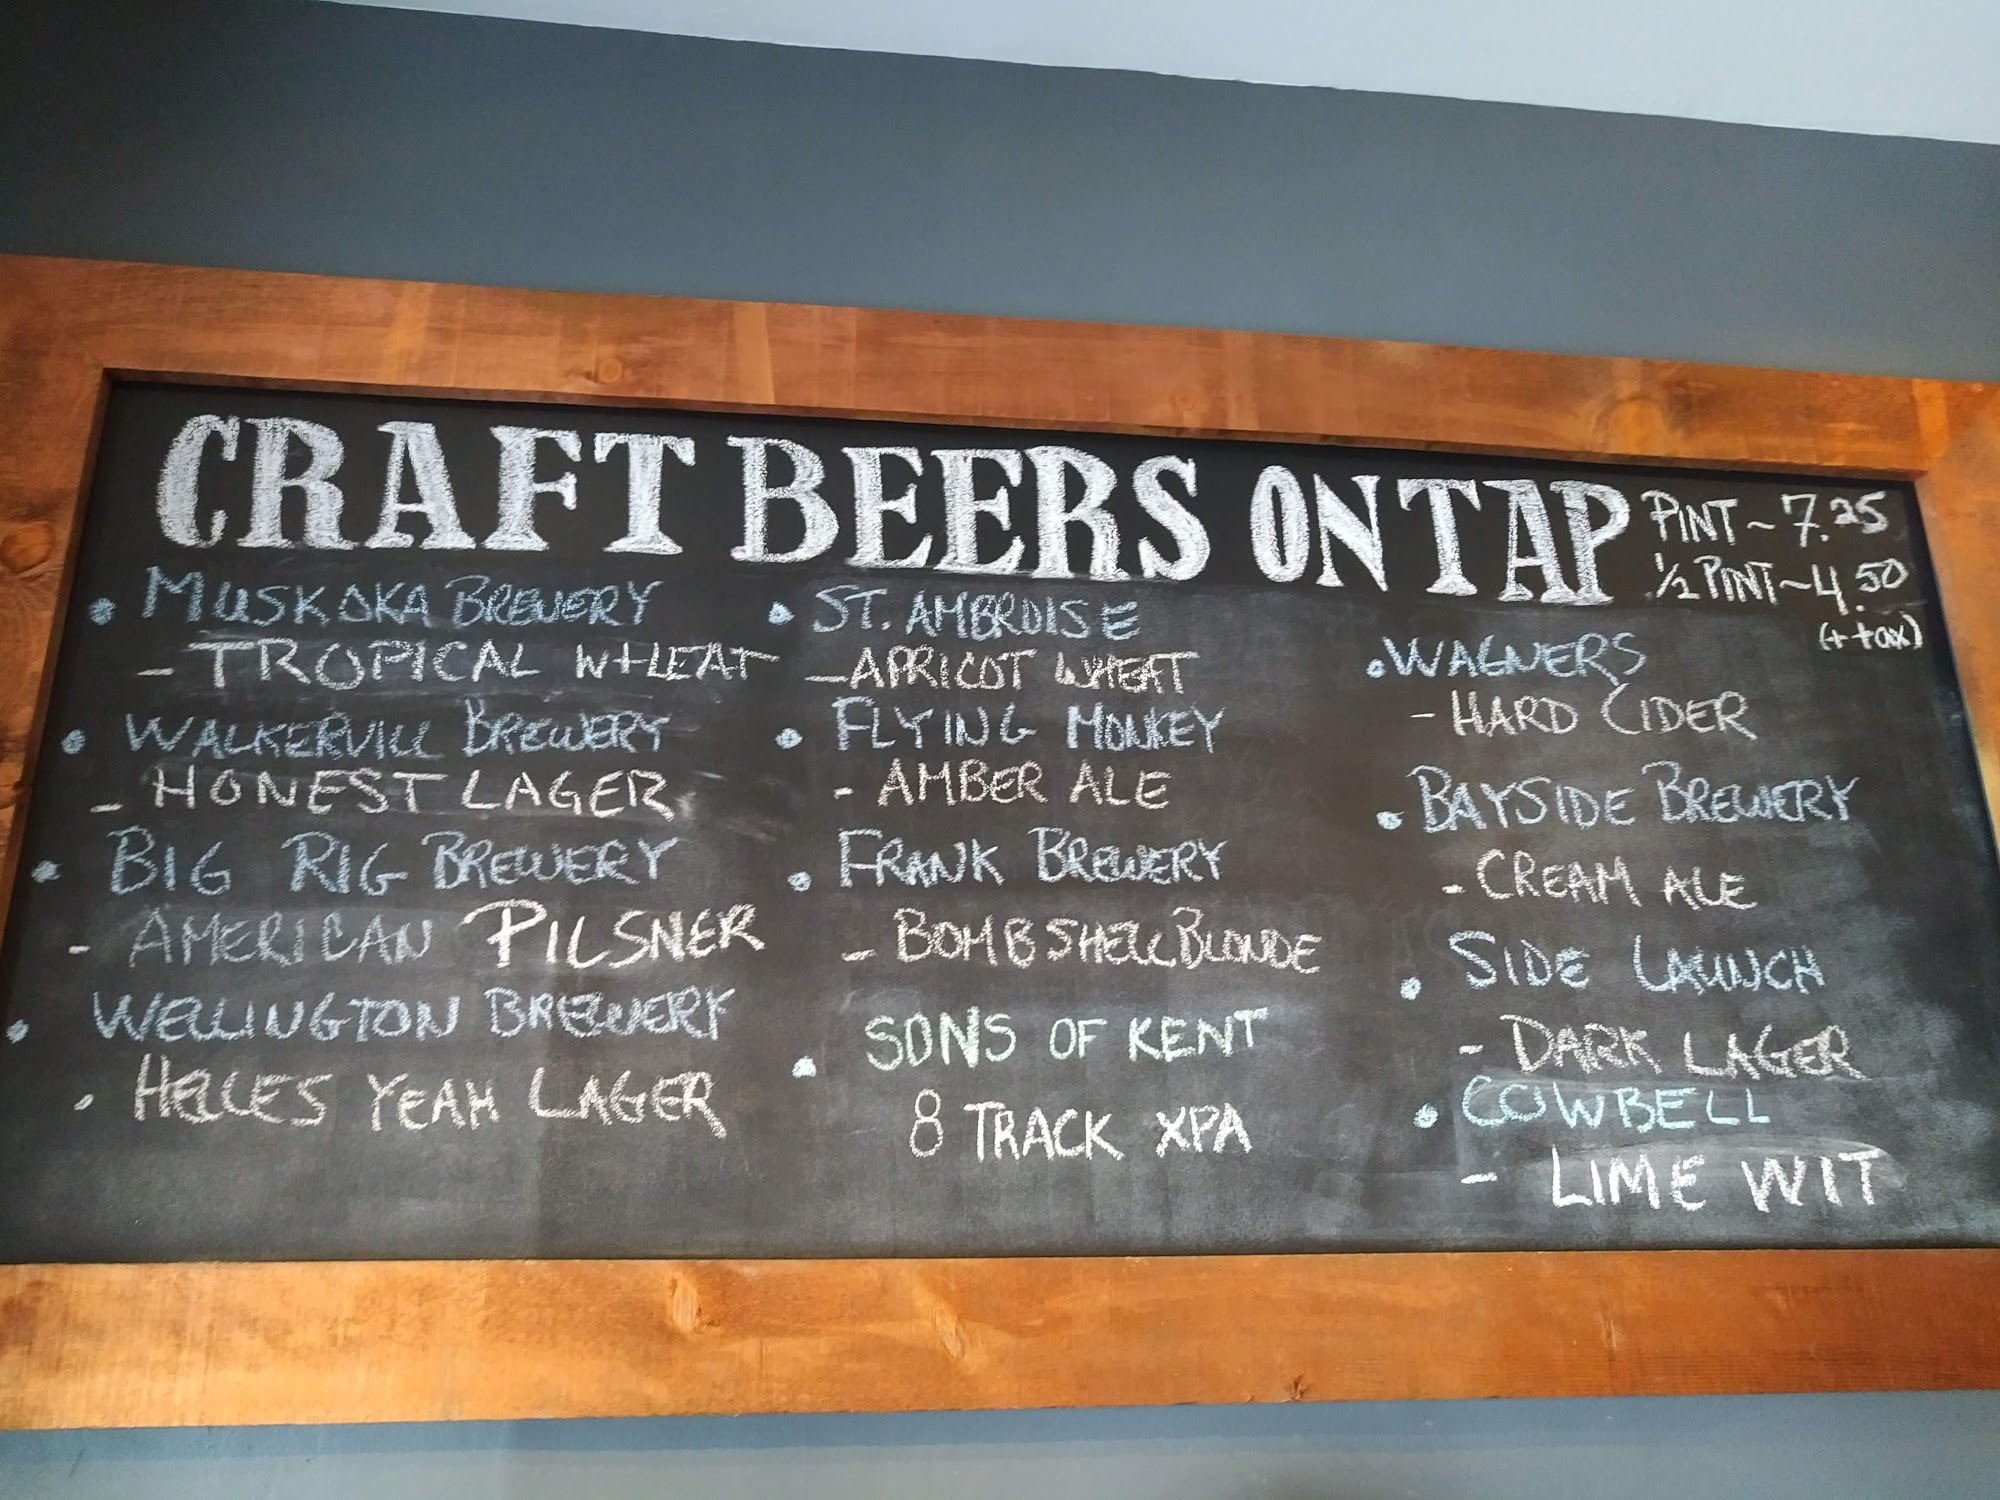 CRAFT BEERS ON TAP
PINT ~ 7.25
1/2 PINT ~ 4.50
(+ tax)
• MUSKOKA BREWERY
- TROPICAL WHEAT
• WALKERVILL BREWERY
- HONEST LAGER
• BIG RIG BREWERY
- AMERICAN PILSNER
• WELLINGTON BREWERY
- HELLES YEAH LAGER
• ST. AMBROISE
- APRICOT WHEAT
• FLYING MONKEY
- AMBER ALE
• FRANK BREWERY
- BOMBSHELL BLONDE
• SONS OF KENT
8 TRACK XPA
• WAGNERS
- HARD CIDER
• BAYSIDE BREWERY
- CREAM ALE
• SIDE LAUNCH
- DARK LAGER
• COWBELL
- LIME WIT